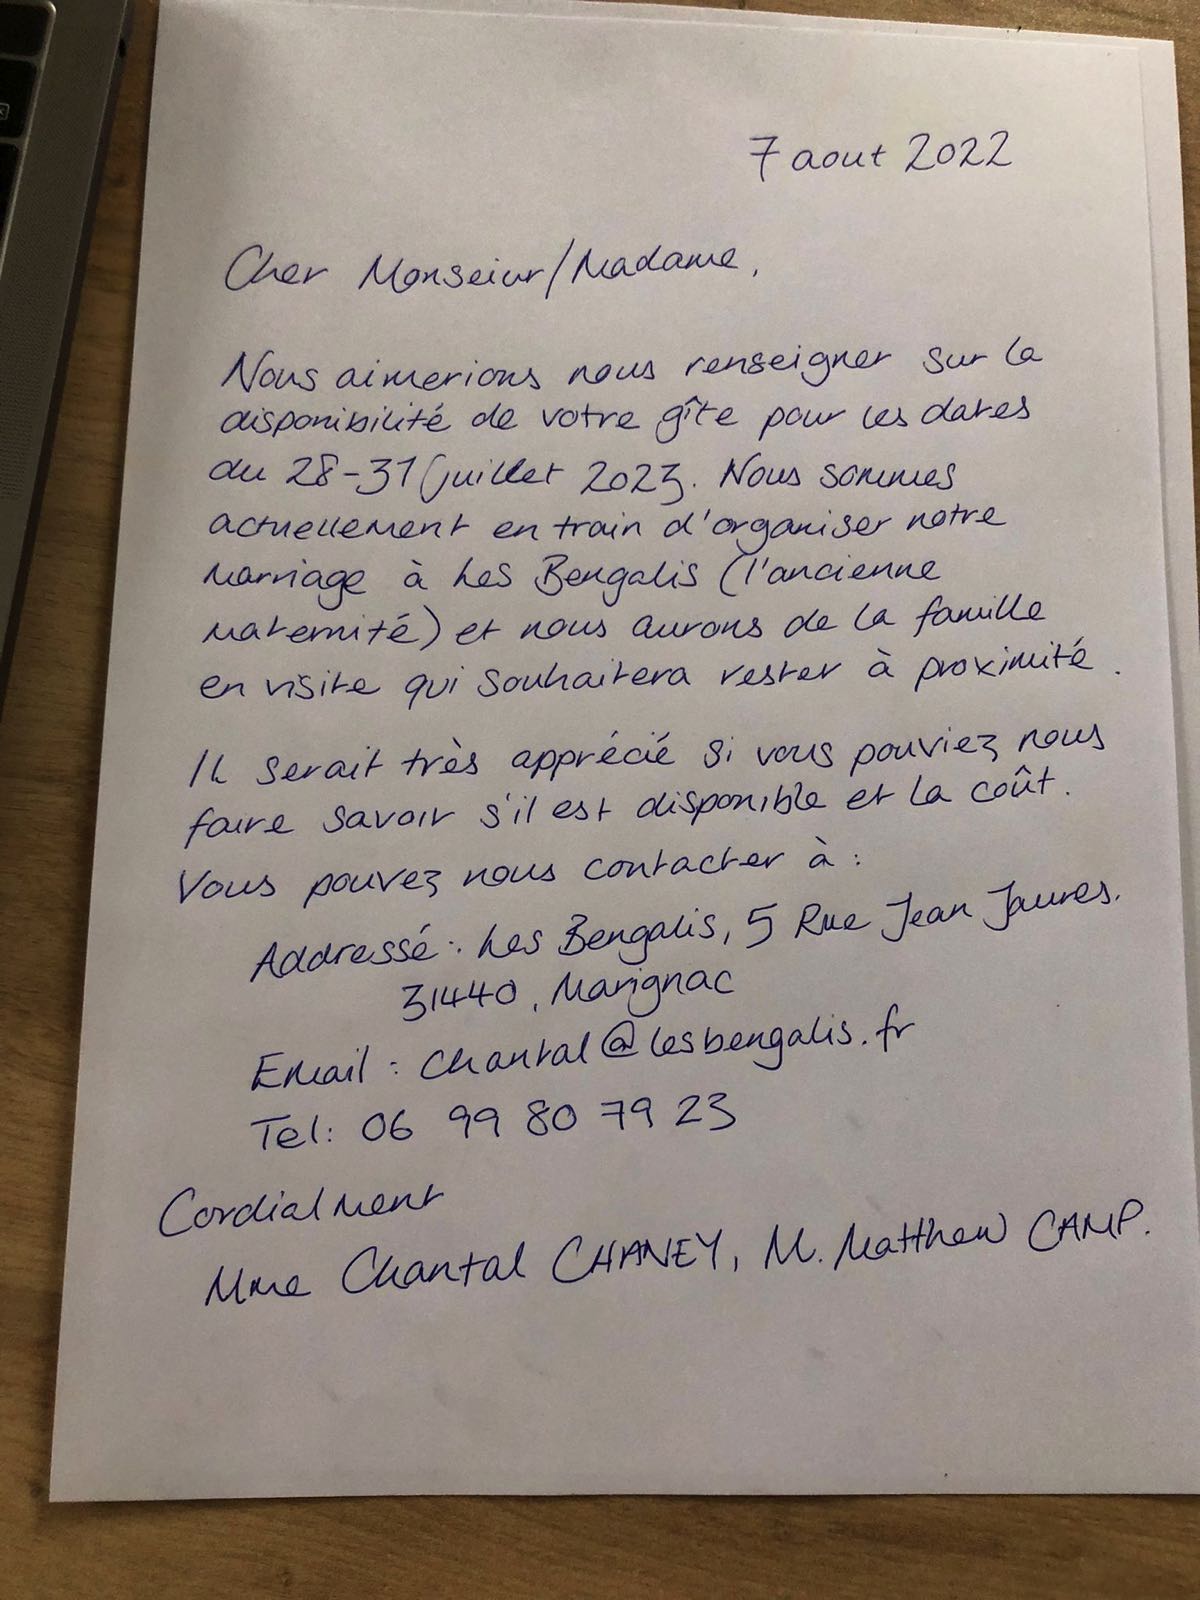 7 aout 2022
Cher Monseiur/Madame,
Nous aimerions nous renseigner sur la
disponibilité de votre gîte pour les dates
du 28-31 juillet 2023. Nous sommes
actuellement en train d'organiser notre
marriage à Les Bengalis (l'ancienne
maternité) et nous aurons de la famille
en visite qui souhaitera rester à proximité.
Il serait très apprécié si vous pouviez nous
faire savoir s'il est disponible et la coût.
Vous pouvez nous contacter à :
Addressé: Les Bengalis, 5 Rue Jean Jaures.
31440, Marignac
Email : chantal@lesbengalis.fr
Tel: 06 99 80 79 23
Cordialment
Mme Chantal CHANEY, M. Matthew CAMP.